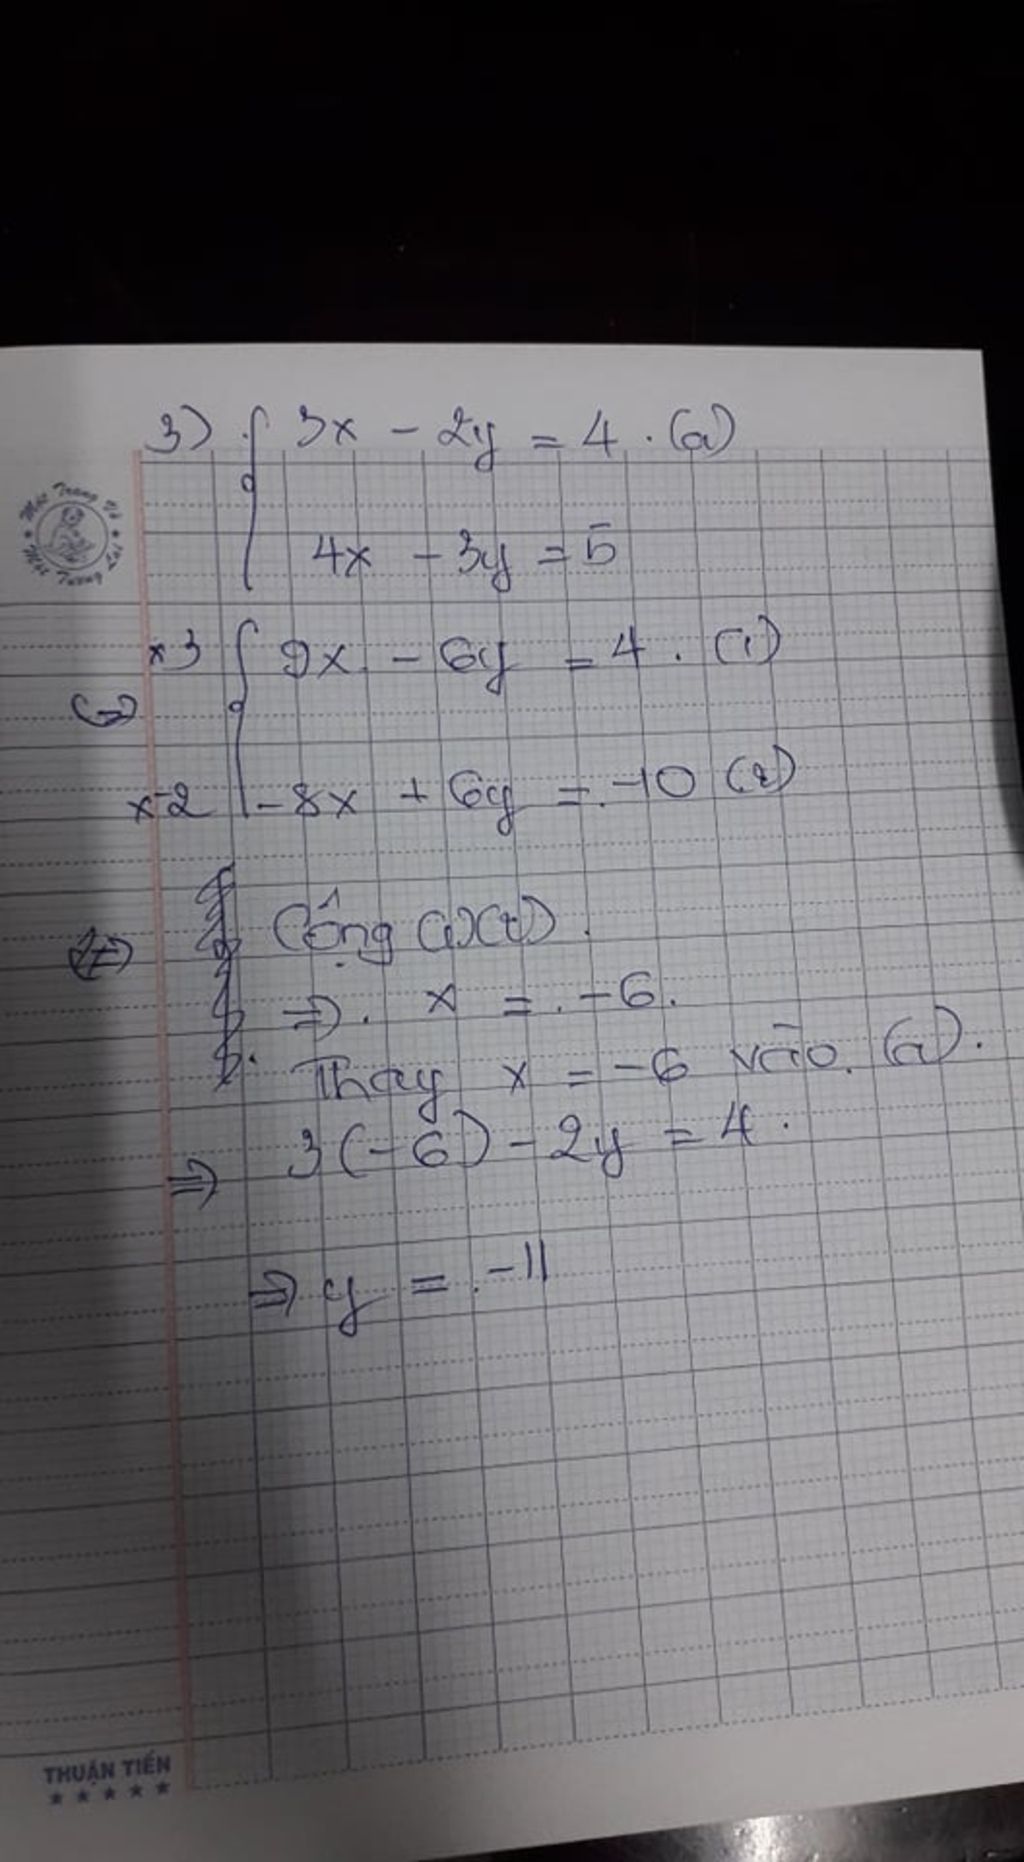 3) { 3x - 2y = 4 . (a)
4x - 3y = 5
x3 { 9x - 6y = 4 . (1)
<=>
x-2 -8x + 6y = -10 (2)
Cộng (1)(2) .
=> . x = -6 .
Thay x = -6 vào (a) .
=> 3(-6) - 2y = 4 .
=> y = -11
THUẬN TIẾN
★★★★★